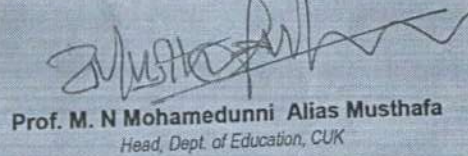 Prof. M. N Mohamedunni Alias Musthafa
Head, Dept. of Education, CUK